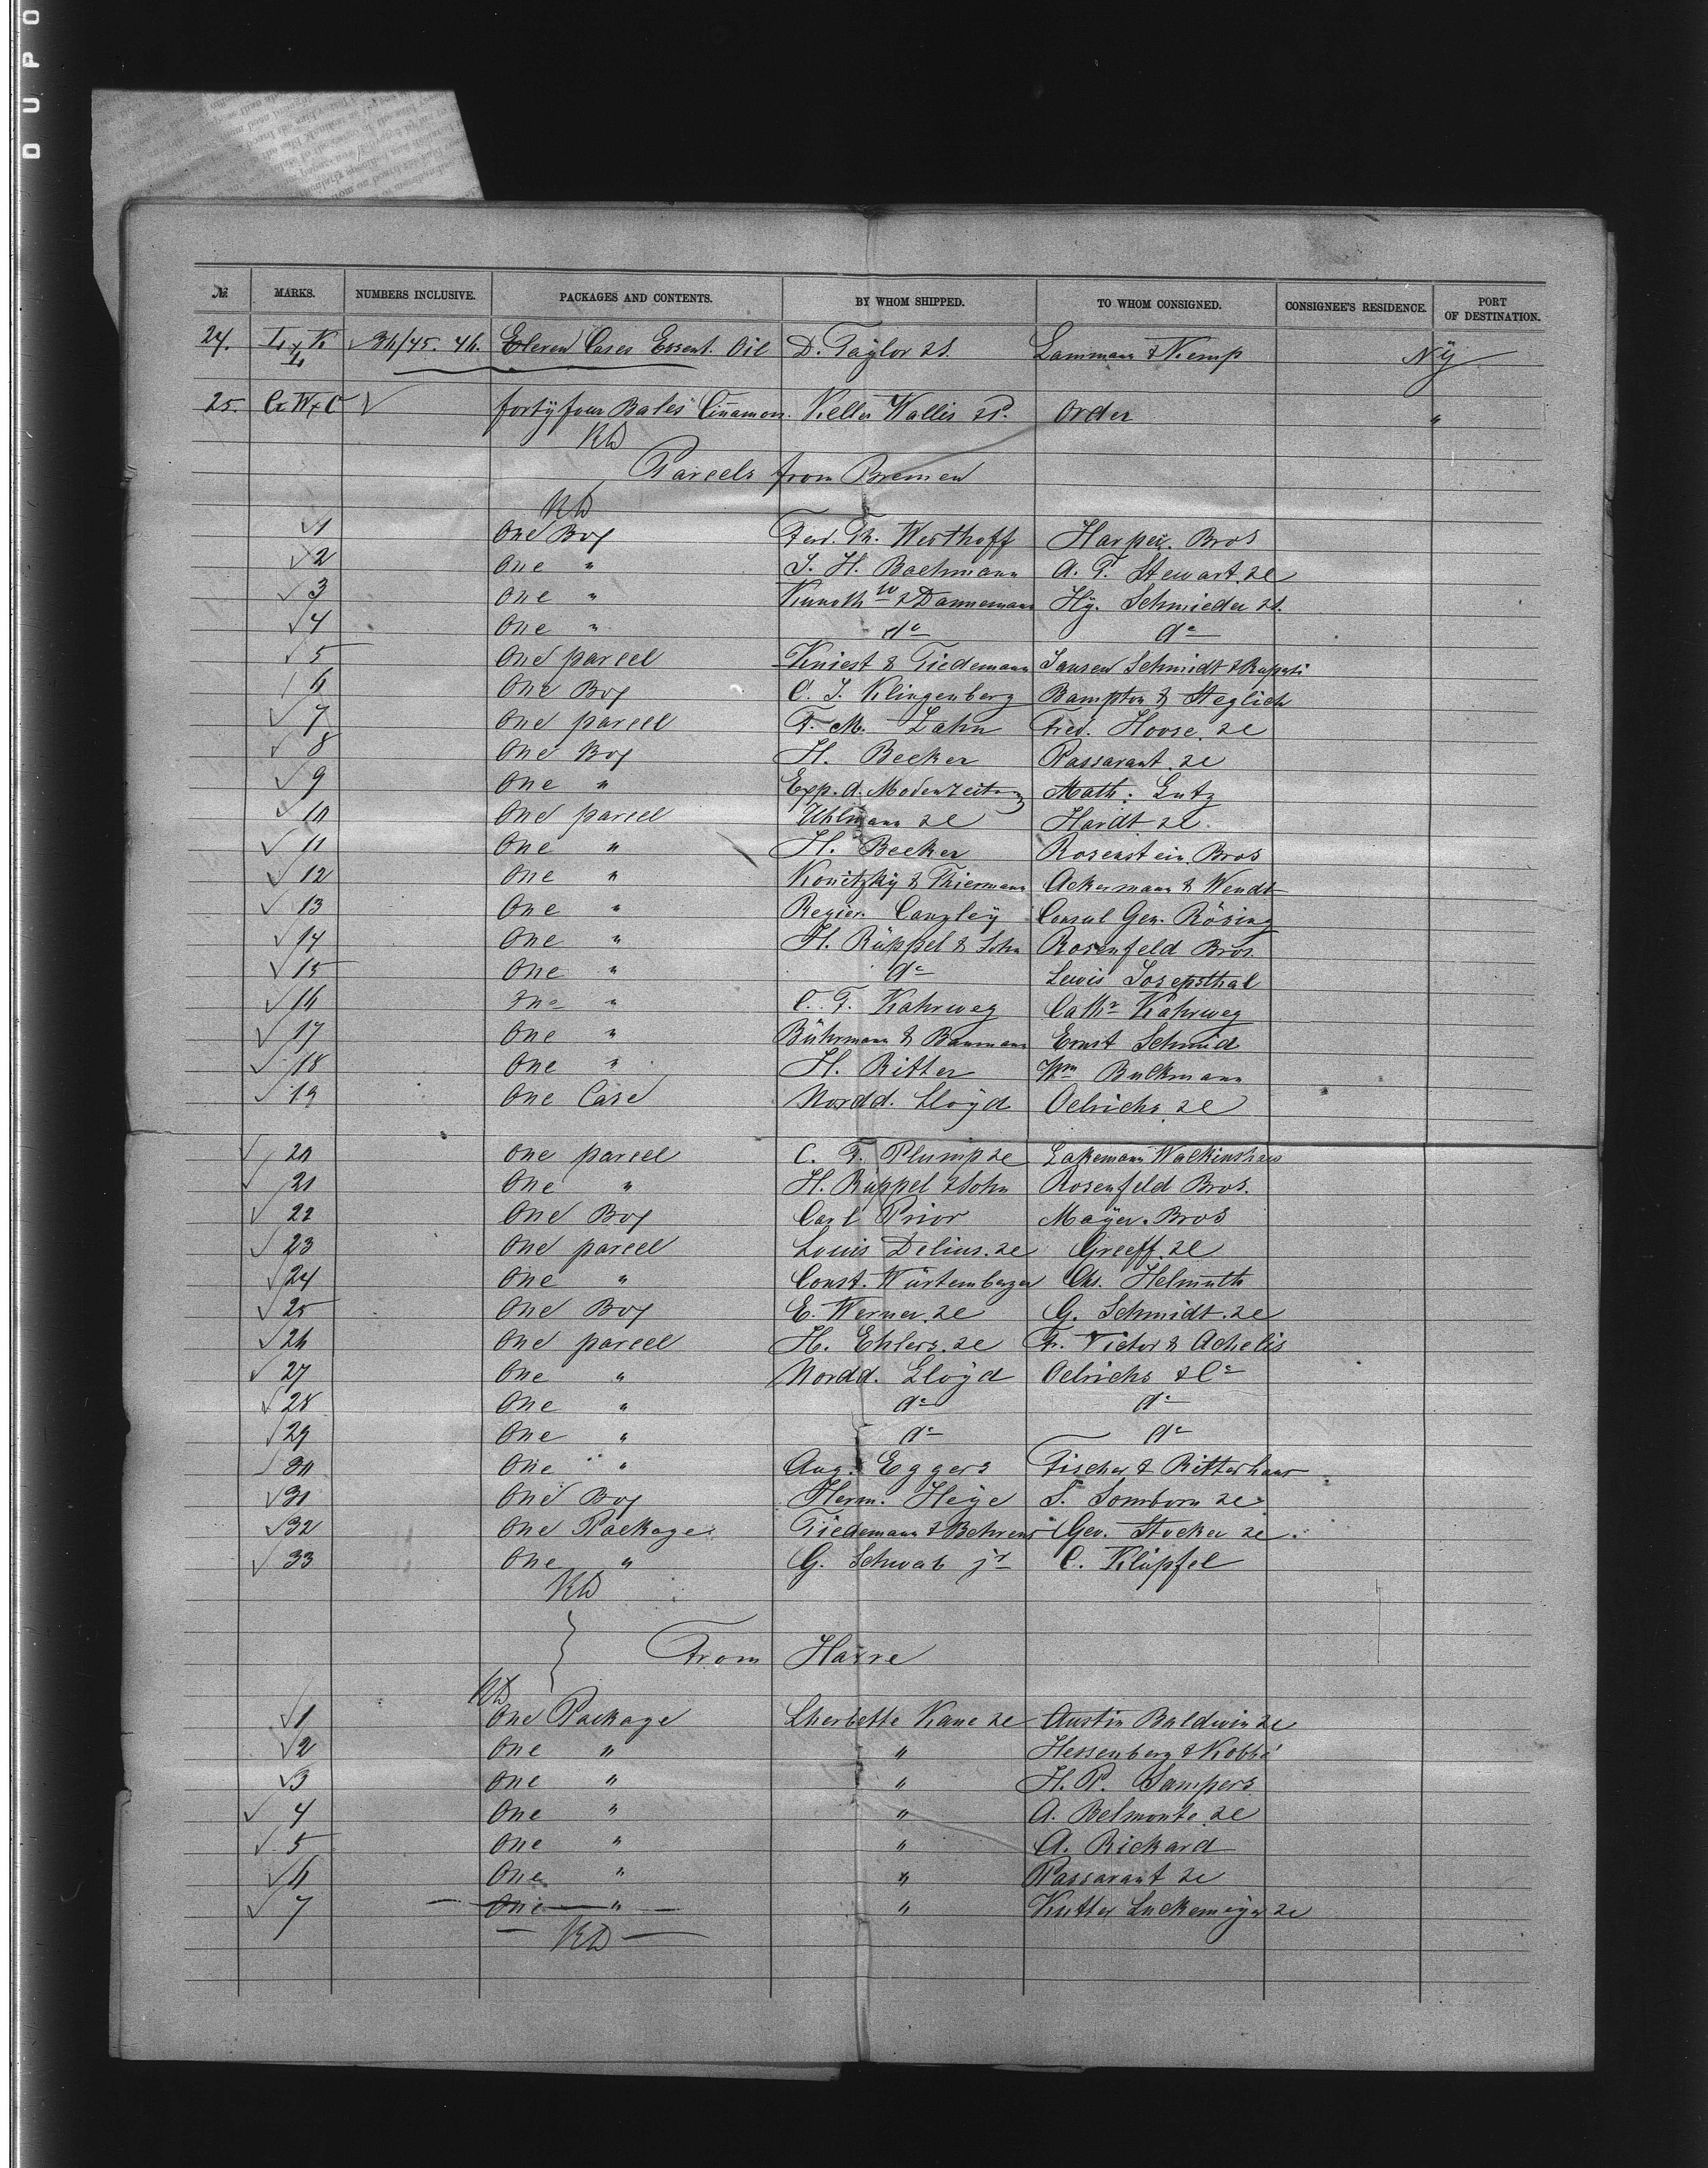 DUPO
№ MARKS. NUMBERS INCLUSIVE. PACKAGES AND CONTENTS. BY WHOM SHIPPED. TO WHOM CONSIGNED. CONSIGNEE'S RESIDENCE. PORT OF DESTINATION.
24. L&K L 36/45. 46. Eleven Cases Essent. Oil D. Taylor Lanmann & Kemp NY
25. G W & C forty four Bales Cinamon. Keller Wallis Order "
KD
Parcels from Bremen
KD
1 One Box Ferd. Th. Westhoff Harper. Bros
2 One " J. H. Bachmann A. T. Stewart. &C
3 One " & Dannemann Hy. Schmieder
4 One " do do
5 One parcel Kniest & Tiedemann Jansen Schmidt & Ruperti
6 One Box C. J. Klingenberg Bampton & Steglich
7 One parcel F. M. Zahn Fred. Hoose. &C
8 One Box H. Becker Passavant. &C
9 One " Exp. d. Modenzeitung Math: Lutz
10 One parcel Uhlmann &C Hardt &C.
11 One " H. Becker Rosenstein. Bros
12 One " Konitzky & Thiermann Ackermann & Wendt
13 One " Regier. Canzley Consul Gen. Rösing
14 One " H. Rüppel & Sohn Rosenfeld Bros.
15 One " do Lewis Josepsthal
16 One " C. F. Kahrweg Cathr Kahrweg
17 One " Bührmann & Baumann Ernst Schmid
18 One " H. Ritter Wm Buckmann
19 One Case Nordd. Lloyd Oelrichs. &C
20 One parcel C. F. Plump &C Lakemann Walkinshaw
21 One " H. Rüppel & Sohn Rosenfeld Bros.
22 One Box Carl Prior Mayer. Bros
23 One parcel Louis Delius. &C Greeff. &C
24 One " Const. Würtemberger Chs. Helmuth
25 One Box E. Werner. &C G. Schmidt. &C
26 One parcel H. Ehlers. &C Fr. Vietor & Achelis
27 One " Nordd. Lloyd Oelrichs & Co
28 One " do do
29 One " do do
30 One " Aug. Eggers Fischer & Ritterhaus
31 One Box Herm. Heye S. Somborn &C
32 One Package. Tiedemann & Behrens Geo. Stocker &C.
33 One " G. Schwab jr C. Klüpfel
KD
From Havre
KD
1 One Package Lherbette Kane &C Austin Baldwin &C
2 One " " Hessenberg & Kobbé
3 One " " H. P. Sampers
4 One " " A. Belmonte. &C
5 One " " A. Rickard
6 One " " Passavant &C
7 One " " Kutter Luckemeyer &C
KD